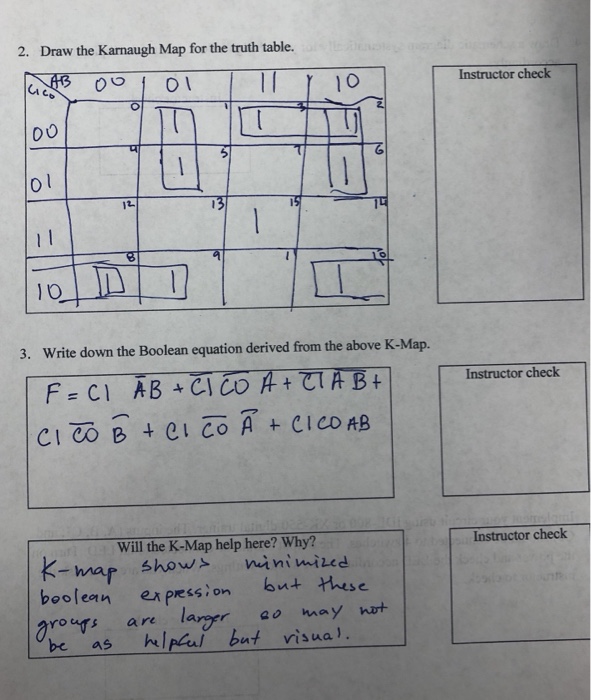 2. Draw the Karnaugh Map for the truth table.
Instructor check
AB 00 01 11 10
C1C0
0 1 3 2
00 1 1 1
4 5 7 6
01 1 1
12 13 15 14
11 1
8 9 11 10
10 1 1 1
3. Write down the Boolean equation derived from the above K-Map.
Instructor check
F = C1 A̅B + C̅1̅ C̅0̅ A + C̅1̅ A B̅ +
C1 C̅0̅ B̅ + C1 C̅0̅ A̅ + C1C0AB
Instructor check
Will the K-Map help here? Why?
K-map shows minimized
boolean expression but these
groups are larger so may not
be as helpful but visual.